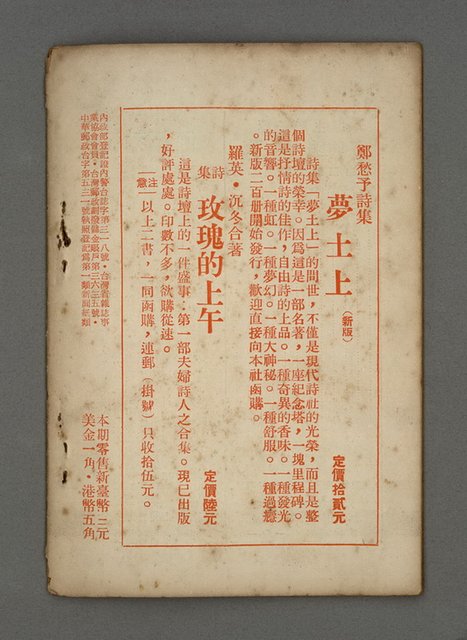 鄭愁予詩集
夢土上
(新版)
定價拾貳元
詩集「夢土上」的問世，不僅是現代詩社的光榮，而且是整
個詩壇的榮幸。因爲這是一部名著，一座紀念塔，一塊里程碑。
這是抒情詩的佳作，自由詩的上品。一種奇異的香味。一種發光
的音響。一種虹。一種夢幻。一種大神秘。一種舒服。一種過癮
。新版二百册開始發行，歡迎直接向本社函購。
羅英・沉冬合著
詩集
玫瑰的上午
定價陸元
這是詩壇上的一件盛事・第一部夫婦詩人之合集。現已出版
，好評處處。印數不多，欲購從速。
注意
以上二書，一同函購，連郵（掛號）只收拾伍元。
本期零售新臺幣二元
美金一角・港幣五角
內政部登記證內警台誌字第三一八號・台灣省雜誌事
業協會會員・台灣郵政劃撥儲金賬戶第三六三五號・
中華郵政台字第五三一號執照登記爲第一類新聞紙類